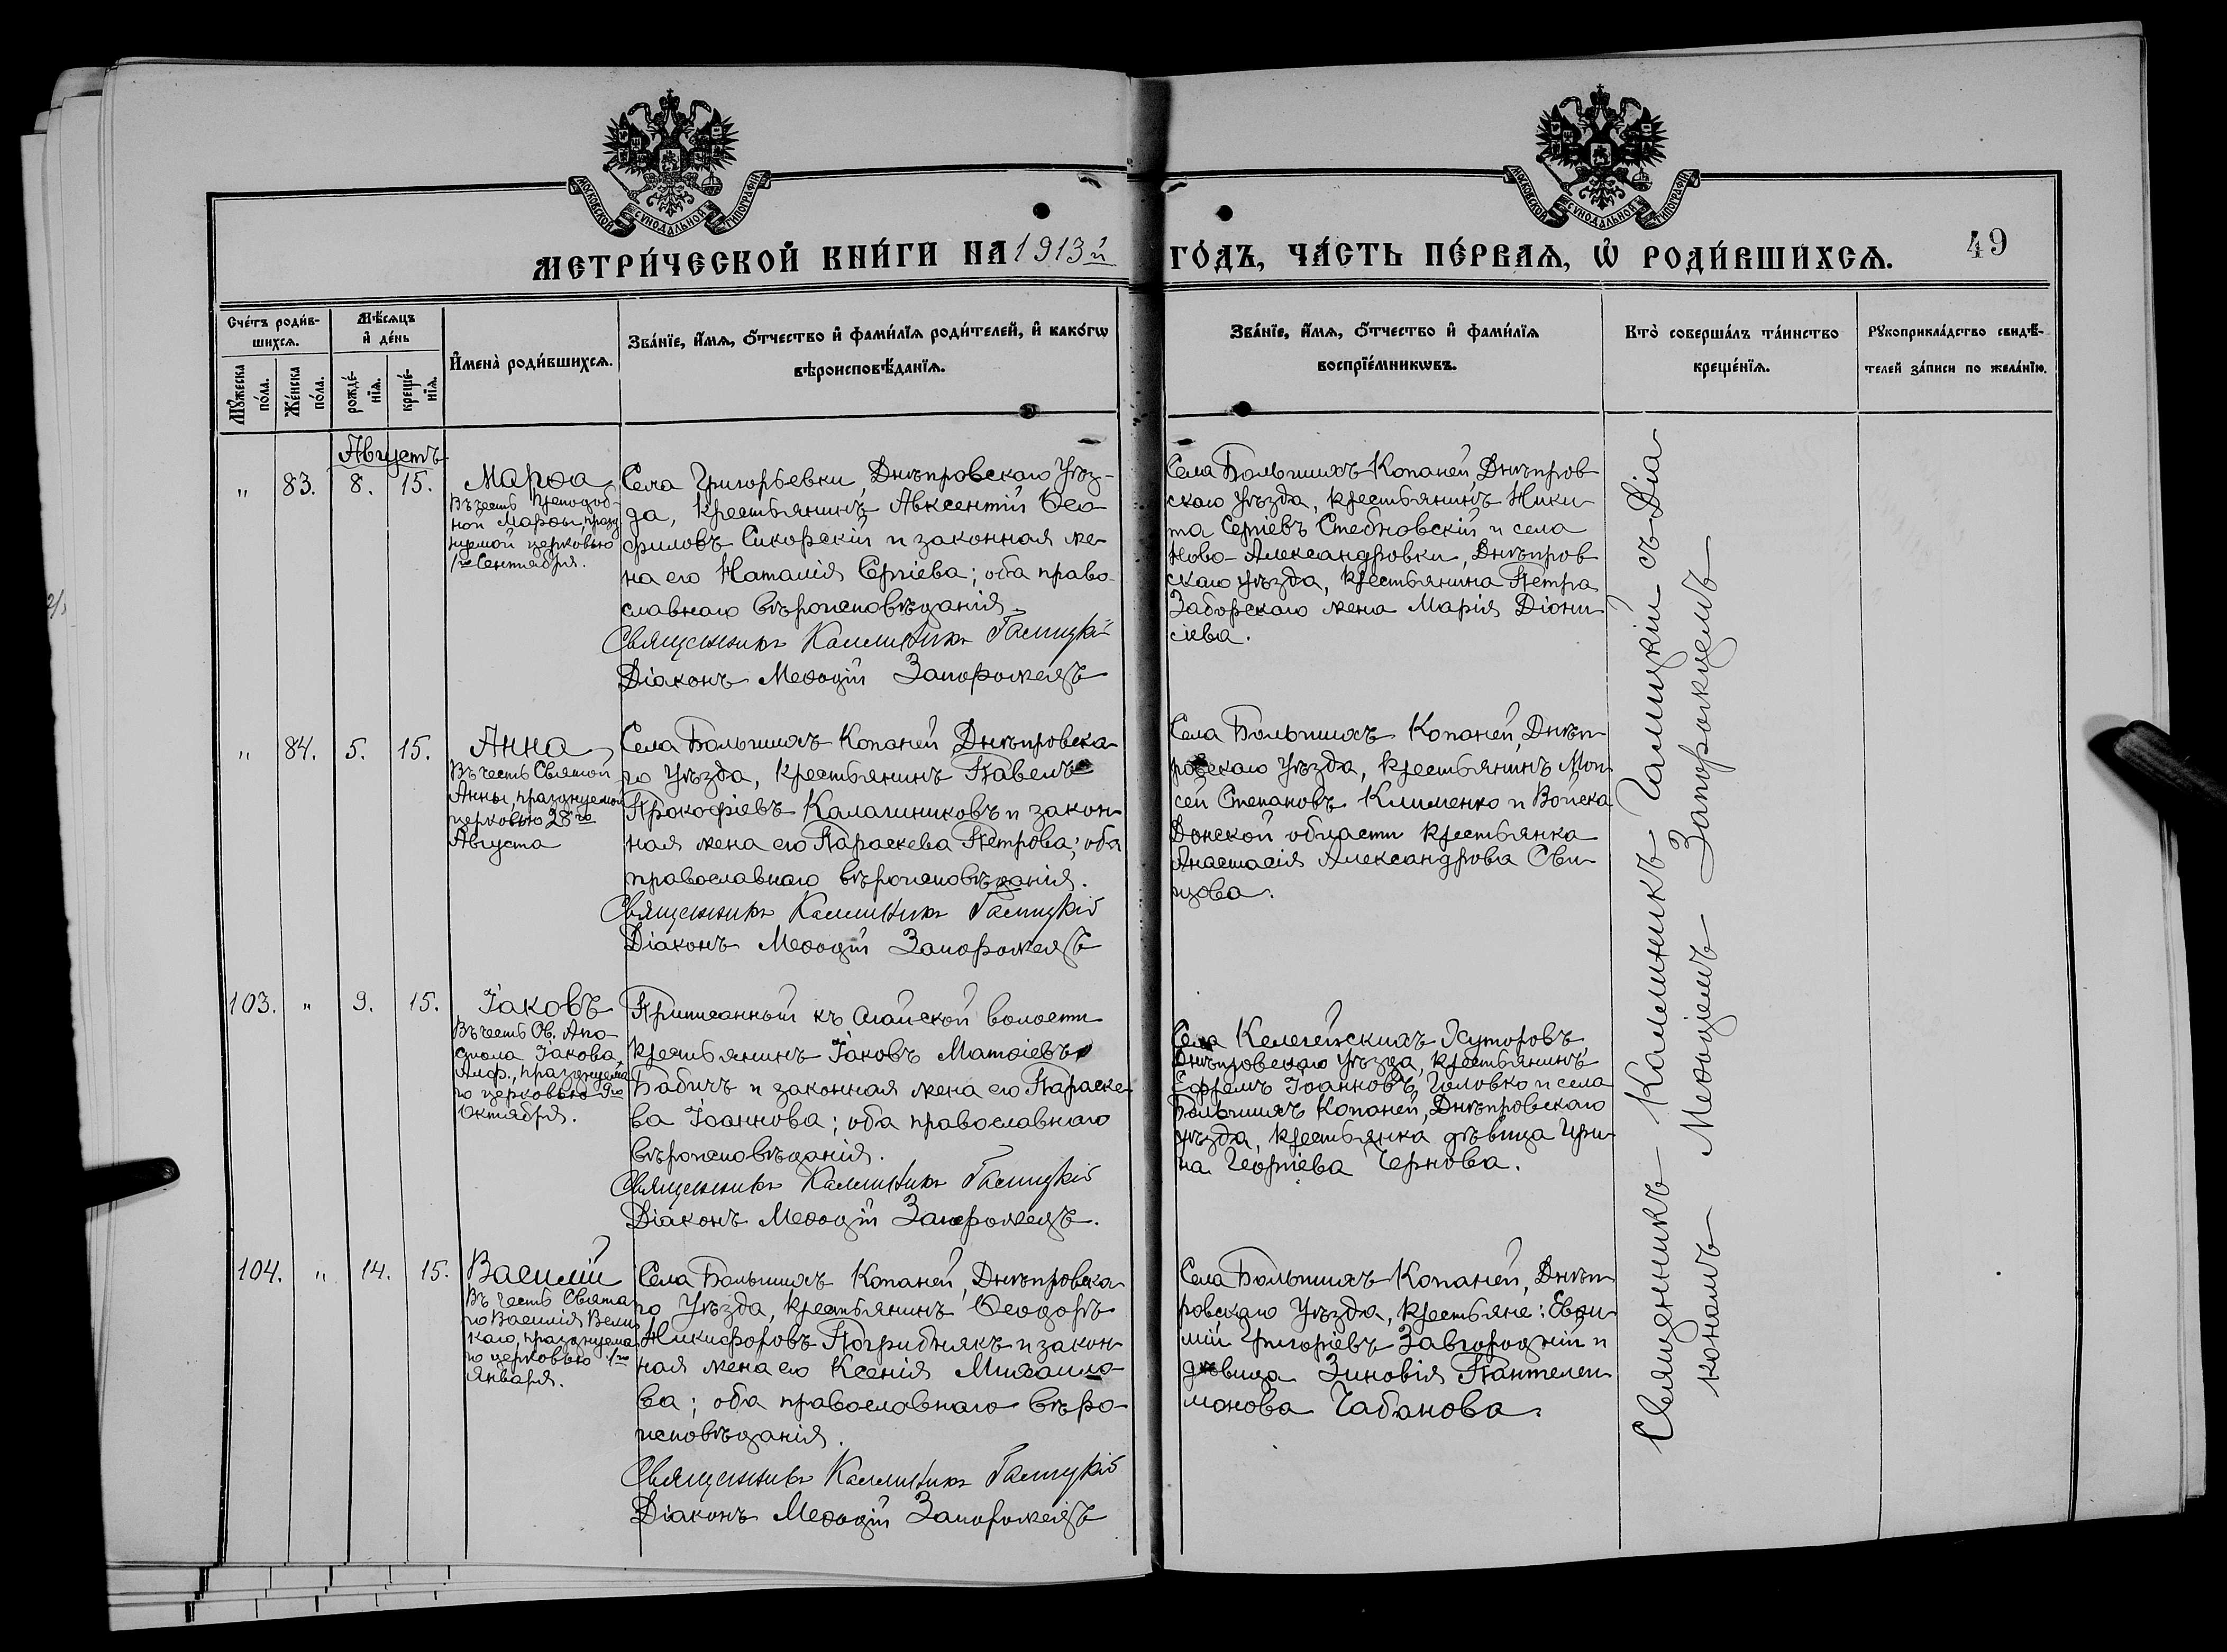 МОСКОВСКОЙ СѴНОДАЛЬНОЙ ТИПОГРАФІИ
МОСКОВСКОЙ СѴНОДАЛЬНОЙ ТИПОГРАФІИ
МЕТРИ́ЧЕСКОЙ КНИ́ГИ НА 1913й ГО́ДЪ, ЧА́СТЬ ПЕ́РВАѦ, Ѡ҆ РОДИ́ВШИХСѦ. 49
Сче́тъ роди́в-
шихсѧ.
Мꙋ́жеска по́ла.
Же́нска по́ла.
Мѣ́сѧцъ
и҆ де́нь
рожде́-
нїѧ.
креще́-
нїѧ.
И҆мена̀ роди́вшихсѧ.
Зва́нїе, и҆́мѧ, ѻ҆́тчество и҆ фами́лїѧ роди́телей, и҆ како́гѡ
вѣроисповѣ́данїѧ.
Зва́нїе, и҆́мѧ, ѻ҆́тчество и҆ фами́лїѧ
воспрїе́мникѡвъ.
Кто̀ соверша́лъ та́инство
креще́нїѧ.
Рꙋкоприкла́дство свидѣ́-
телей за́писи по жела́нїю.
Августъ
" 83. 8. 15.
Марѳа
Въ честь Преподоб-
ной Марѳы, празд
нуемой церковью
1го Сентября.
Села Григорьевки, Днѣпровскаго Уѣз-
да, крестьянинъ Авксентій Ѳео
филовъ Сикорскій и законная же-
на его Наталія Сергіева; оба право-
славнаго вѣроисповѣданія.
Священникъ Каллиникъ Галицкій
Діаконъ Меѳодій Запорожецъ
Села Большихъ Копаней, Днѣпров
скаго уѣзда, крестьянинъ Ники-
та Сергіевъ Стебновскій и села
Ново-Александровки, Днѣпров
скаго уѣзда, крестьянина Петра
Заборскаго жена Марія Діони-
сіева.
" 84. 5. 15.
Анна
Въ честь Святой
Анны, празднуемой
церковью 28го
Августа
Села Большихъ Копаней Днѣпровска-
го Уѣзда, крестьянинъ Павелъ
Прокофіевъ Калашниковъ и закон-
ная жена его Параскева Петрова; оба
православнаго вѣроисповѣданія.
Священникъ Каллиникъ Галицкій
Діаконъ Меѳодій Запорожецъ
Села Большихъ Копаней, Днѣп-
ровскаго Уѣзда, крестьянинъ Мои-
сей Степановъ Клименко и Войска
Донской области крестьянка
Анастасія Александрова Сви-
нцова.
103. " 9. 15.
Іаковъ
Въ честь Св. Апо-
стола Іакова
Алф., празднуема
го церковью 9го
Октября.
Приписанный къ Агайской волости
крестьянинъ Іаковъ Матѳіевъ
Бабичъ и законная жена его Параске-
ва Іоаннова; оба православнаго
вѣроисповѣданія.
Священникъ Каллиникъ Галицкій
Діаконъ Меѳодій Запорожецъ.
Села Келегейскихъ Хуторовъ,
Днѣпровскаго Уѣзда, крестьянинъ
Ефремъ Іоанновъ Головко и села
Большихъ Копаней, Днѣпровскаго
уѣзда, крестьянка дѣвица Ири-
на Георгіева Чернова.
104. " 14. 15.
Василій
Въ честь Свята
го Василія Вели
каго, празднуема
го церковью 1го
Января.
Села Большихъ Копаней, Днѣпровска-
го Уѣзда, крестьянинъ Ѳеодоръ
Никифоровъ Погрибнякъ и закон-
ная жена его Ксенія Михаило-
ва; оба православнаго вѣро-
исповѣданія.
Священникъ Каллиникъ Галицкій
Діаконъ Меѳодій Запорожецъ
Села Большихъ Копаней, Днѣп-
ровскаго Уѣзда, крестьяне: Евѳи-
мій Григоріевъ Завгородній и
дѣвица Зиновія Пантелеи-
монова Чабанова.
Священникъ Каллиникъ Галицкій съ Діа-
кономъ Меѳодіемъ Запорожцемъ